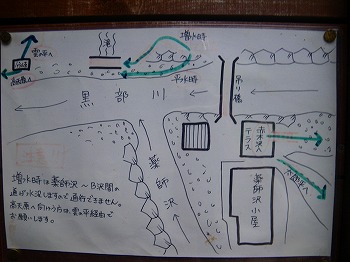 雲の平へ
高天原へ
滝
増水時
平水時
吊り橋
黒部川
薬師沢
赤木沢へ
テラス
太郎平へ
薬師沢小屋
増水時は薬師沢～B沢間の
道が水没しますので通行できません。
高天原へ向かう方は、雲の平経由で
お願いします。